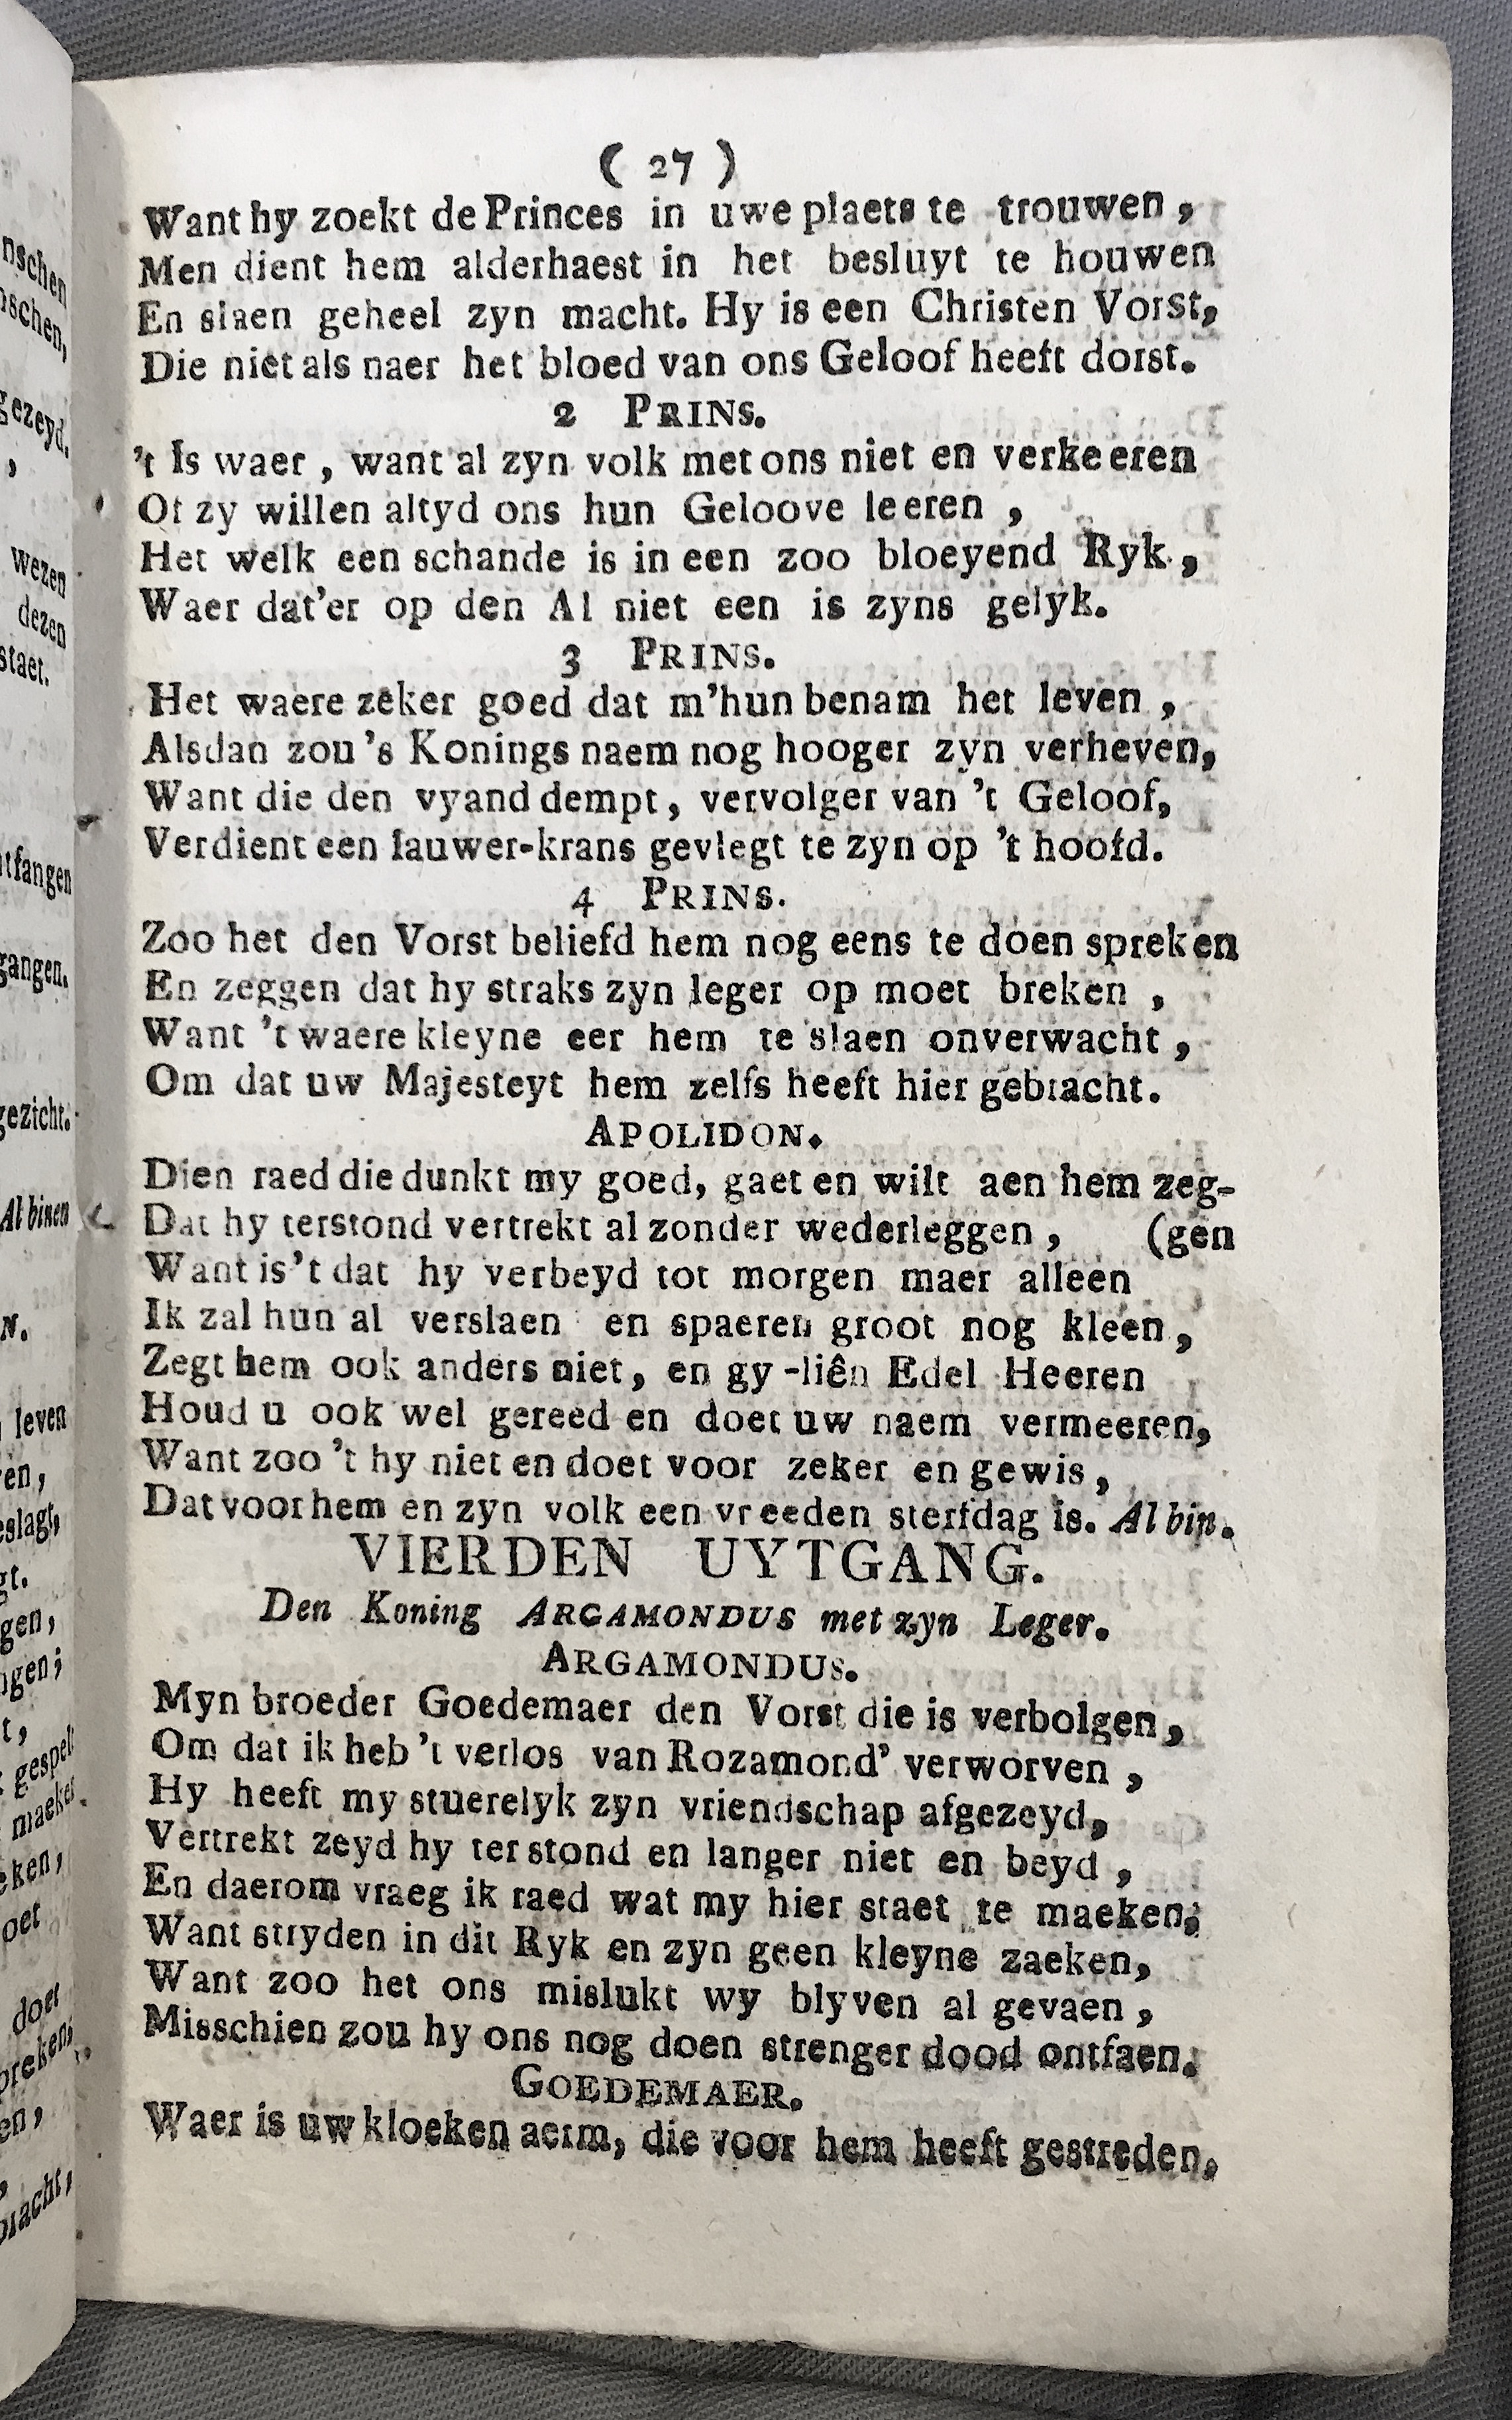 ( 27 )
Want hy zoekt de Princes in uwe plaets te trouwen,
Men dient hem alderhaest in het besluyt te houwen
En slaen geheel zyn macht. Hy is een Christen Vorst,
Die niet als naer het bloed van ons Geloof heeft dorst.
2 PRINS.
't Is waer, want al zyn volk met ons niet en verkeeren
Of zy willen altyd ons hun Geloove leeren,
Het welk een schande is in een zoo bloeyend Ryk,
Waer dat'er op den Al niet een is zyns gelyk.
3 PRINS.
Het waere zeker goed dat m'hun benam het leven,
Alsdan zou 's Konings naem nog hooger zyn verheven,
Want die den vyand dempt, vervolger van 't Geloof,
Verdient een lauwer-krans gevlegt te zyn op 't hoofd.
4 PRINS.
Zoo het den Vorst beliefd hem nog eens te doen spreken
En zeggen dat hy straks zyn leger op moet breken,
Want 't waere kleyne eer hem te slaen onverwacht,
Om dat uw Majesteyt hem zelfs heeft hier gebracht.
APOLIDON.
Dien raed die dunkt my goed, gaet en wilt aen hem zeg-
Dat hy terstond vertrekt al zonder wederleggen, (gen
Want is't dat hy verbeyd tot morgen maer alleen
Ik zal hun al verslaen en spaeren groot nog kleen,
Zegt hem ook anders niet, en gy-liên Edel Heeren
Houd u ook wel gereed en doet uw naem vermeeren,
Want zoo 't hy niet en doet voor zeker en gewis,
Dat voor hem en zyn volk een vreeden sterfdag is. Al bin.
VIERDEN UYTGANG.
Den Koning ARGAMONDUS met zyn Leger.
ARGAMONDUS.
Myn broeder Goedemaer den Vorst die is verbolgen,
Om dat ik heb 't verlos van Rozamond' verworven,
Hy heeft my stuerelyk zyn vriendschap afgezeyd,
Vertrekt zeyd hy terstond en langer niet en beyd,
En daerom vraeg ik raed wat my hier staet te maeken;
Want stryden in dit Ryk en zyn geen kleyne zaeken,
Want zoo het ons mislukt wy blyven al gevaen,
Misschien zou hy ons nog doen strenger dood ontfaen.
GOEDEMAER.
Waer is uw kloeken aerm, die voor hem heeft gestreden,